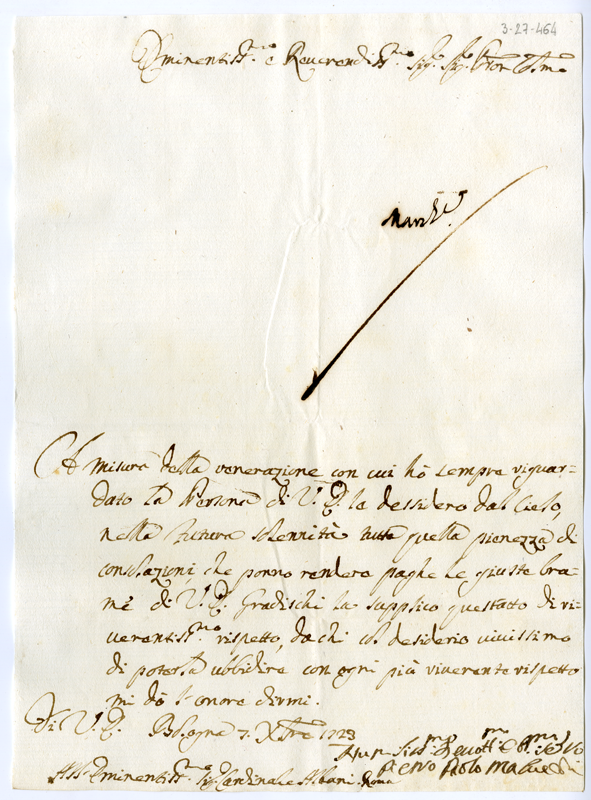 3-27-464
Eminentiss.mo e Reverendiss.mo Sig.r Sig.r Pron Col.mo
March.e
A misura della venerazione con cui hò sempre riguar=
dato la Persona di V. E. le dessidero dal Cielo,
nella futura solennità tutta quella pienezza di
consolazioni che ponno rendere paghe le giuste bra=
me di V. E. Gradischi la supplico quest'atto di ri=
uerentiss.mo rispetto, da chi col desiderio viuissimo
di poterla ubbidire con ogni più riuerente rispetto
mi dò l'onore dirmi.
Di V. E. Bologna 7. Xbre 1723
Deuott.mo
Seruo Paolo Maluezzi
All' Eminentiss.mo Sig.r Cardinale Albani Roma